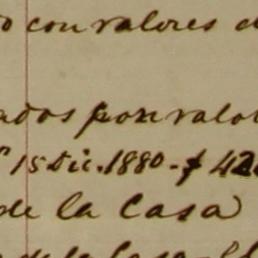 o con valores d
ados por valor
15 Dic. 1880 - $ 42
de la Casa
de la Casa